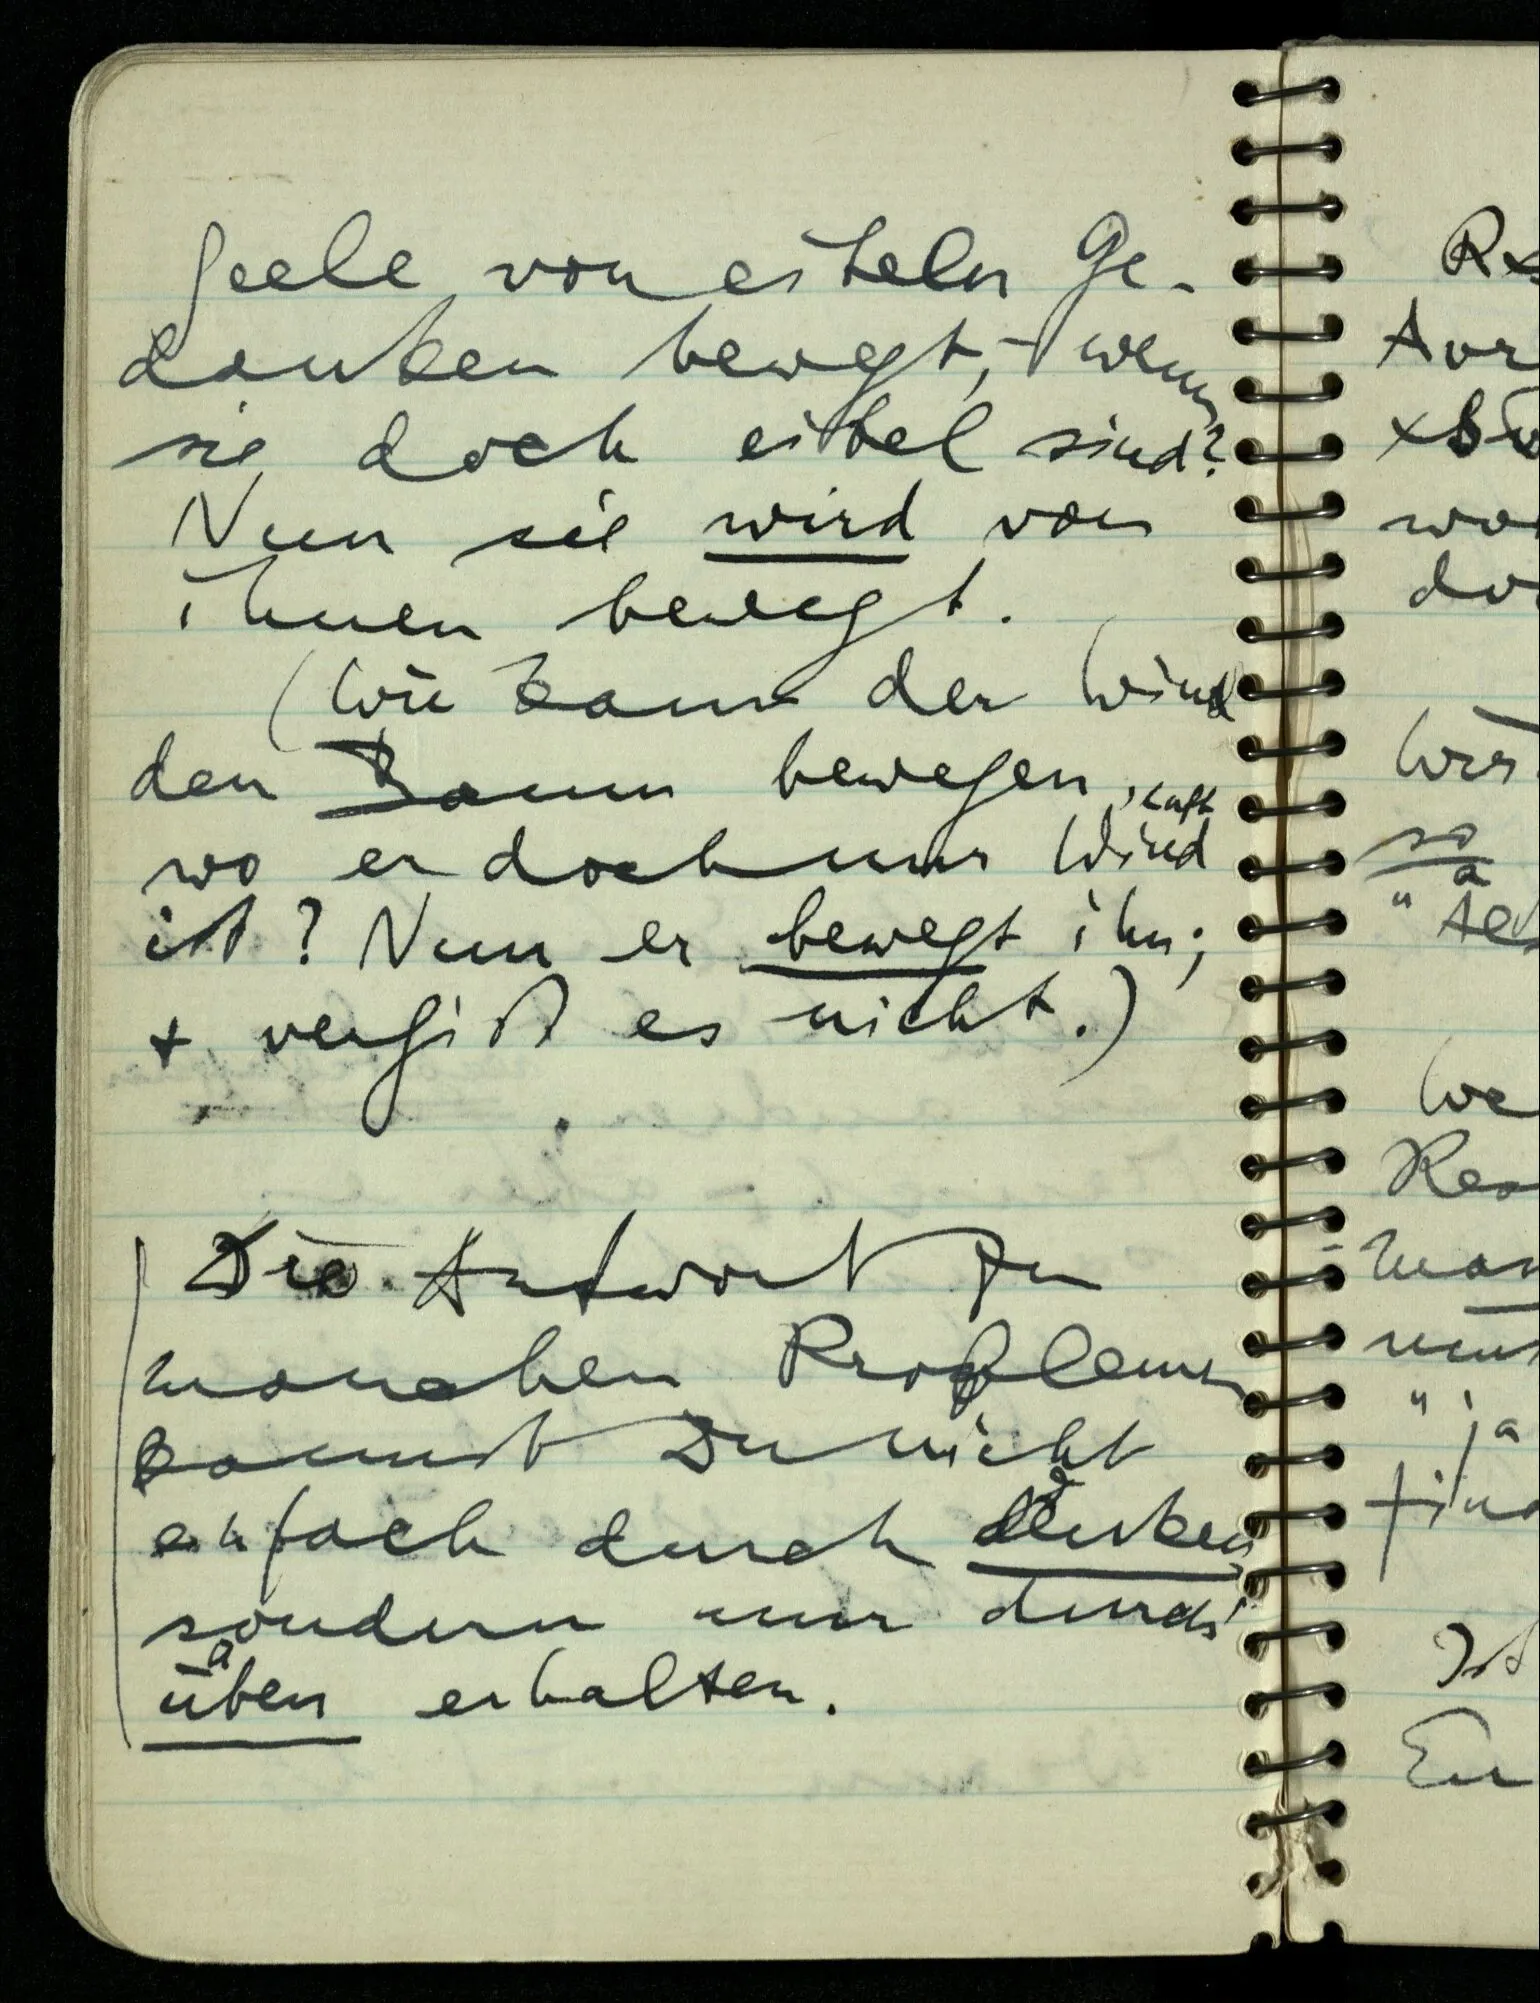 Seele von eiteln Ge-
danken bewegt, – wenn
sie doch eitel sind?
Nun sie wird von
ihnen bewegt.
(Wie kann der Wind
den Baum bewegen,
Luft
wo er doch nur Wind
ist? Nun er bewegt ihn;
+ vergiß es nicht.)
Die Antwort zu
manchen Problemen
kannst Du nicht
einfach durch Denken,
sondern nur durch's
üben erhalten.
Wir
so
wo